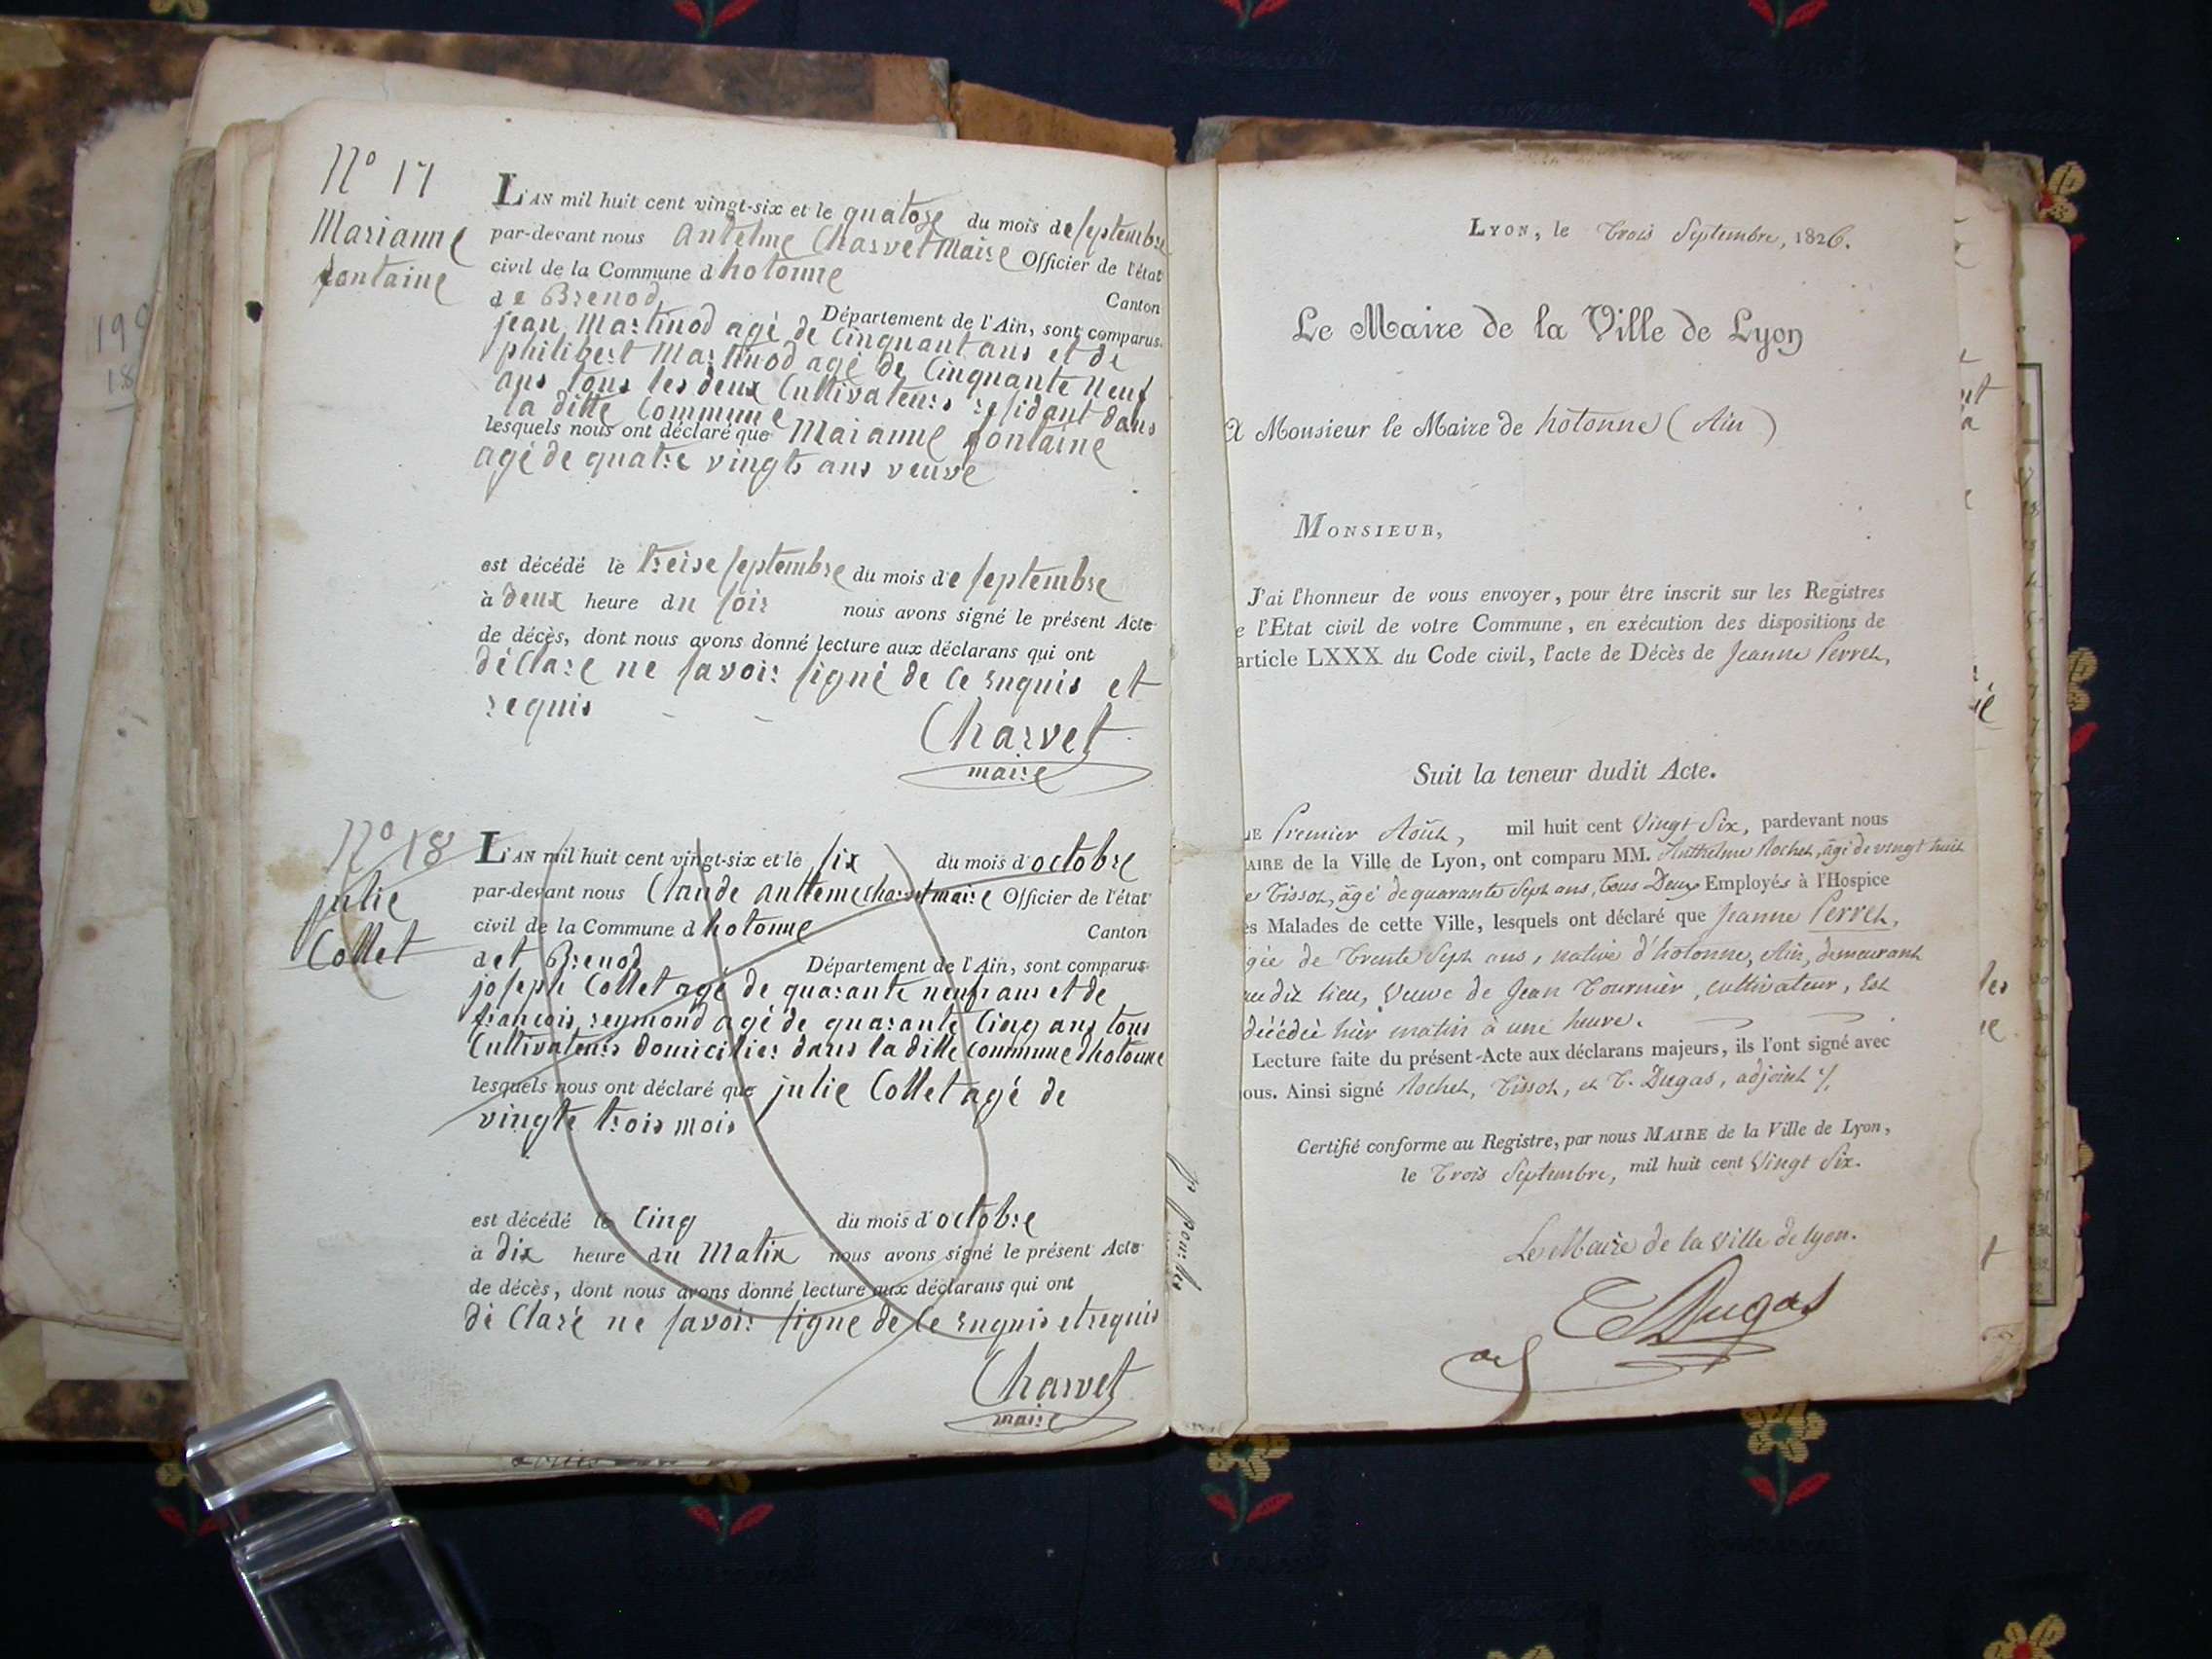 N° 17
Marianne
fontaine
L'AN mil huit cent vingt-six et le quatoze du mois de septembre
par-devant nous Antelme Charvet Maire Officier de l'état
civil de la Commune d'hotonne
Canton
de Brenod
Département de l'Ain, sont comparus
jean Martinod agé de Cinquant ans et de
philibert Martinod agé de Cinquante Neuf
ans tous les deux Cultivateurs residant dans
la ditte Commune
lesquels nous ont déclaré que Maianne fontaine
agé de quatre vingts ans veuve
est décédé le treise septembre du mois de septembre
à deux heure du soir nous avons signé le présent Acte
de décès, dont nous avons donné lecture aux déclarans qui ont
déclaré ne savoir signé de ce enquis et
requis
Charvet
maire
N° 18
julie
Collet
L'AN mil huit cent vingt-six et le six du mois d'octobre
par-devant nous Claude anttemecharvet maire Officier de l'état
civil de la Commune d hotonne
Canton
det Brenod
Département de l'Ain, sont comparus
joseph Collet agé de quarante neuf ans et de
françois reymond agé de quarante Cinq ans tous
Cultivateurs domicilier dans la ditte commune dhotonne
lesquels nous ont déclaré que julie Collet agé de
vingte trois mois
est décédé le Cinq du mois d'octobre
à dix heure du Matin nous avons signé le présent Acte
de décès, dont nous avons donné lecture aux déclarans qui ont
dé Claré ne savoir signe de Ce enquis et requis
Charvet
maire
LYON, le trois Septembre, 1826.
Le Maire de la Ville de Lyon
A Monsieur le Maire de hotonne (Ain)
MONSIEUR,
J'ai l'honneur de vous envoyer, pour être inscrit sur les Registres
e l'Etat civil de votre Commune, en exécution des dispositions de
article LXXX du Code civil, l'acte de Décès de Jeanne Perret,
Suit la teneur dudit Acte.
LE Premier Août, mil huit cent Vingt Six, pardevant nous
AIRE de la Ville de Lyon, ont comparu MM. Anthelme Rochet, âgé de vingt huit
Tissot, âgé de quarante Sept ans, tous Deux Employés à l'Hospice
es Malades de cette Ville, lesquels ont déclaré que Jeanne Perret,
gée de trente Sept ans, native d'hotonne, Ain, demeurant
au dit lieu, Veuve de Jean Tournier, cultivateur, Est
décédée hier matin à une heure.
Lecture faite du présent-Acte aux déclarans majeurs, ils l'ont signé avec
ous. Ainsi signé Rochet, Tissot, et T. Dugas, adjoint
Certifié conforme au Registre, par nous MAIRE de la Ville de Lyon,
le trois Septembre, mil huit cent Vingt Six.
Le Maire de la ville de lyon.
Dugas